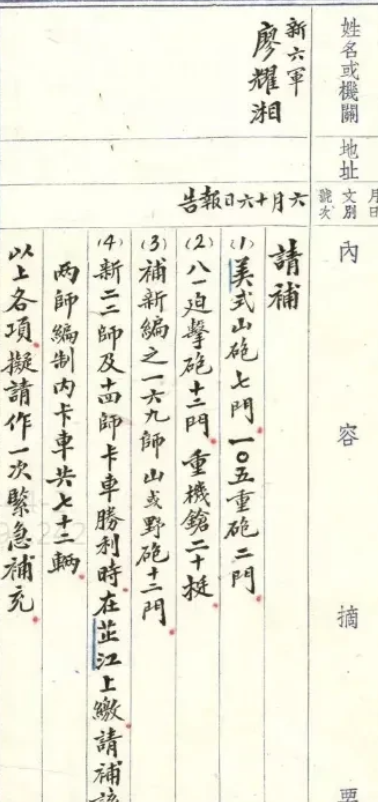 姓名或機關
新六軍
廖耀湘
地址
月日
文別
號次
六月十六日報告
內容摘要
請補
(1)美式山砲七門一〇五重砲二門
(2)八一迫擊砲十二門重機鎗二十挺
(3)補新編之一六九師山或野砲十二門
(4)新二二師及十四師卡車勝利時在芷江上繳請補該
兩師編制內卡車共七十二輛
以上各項擬請作一次緊急補充